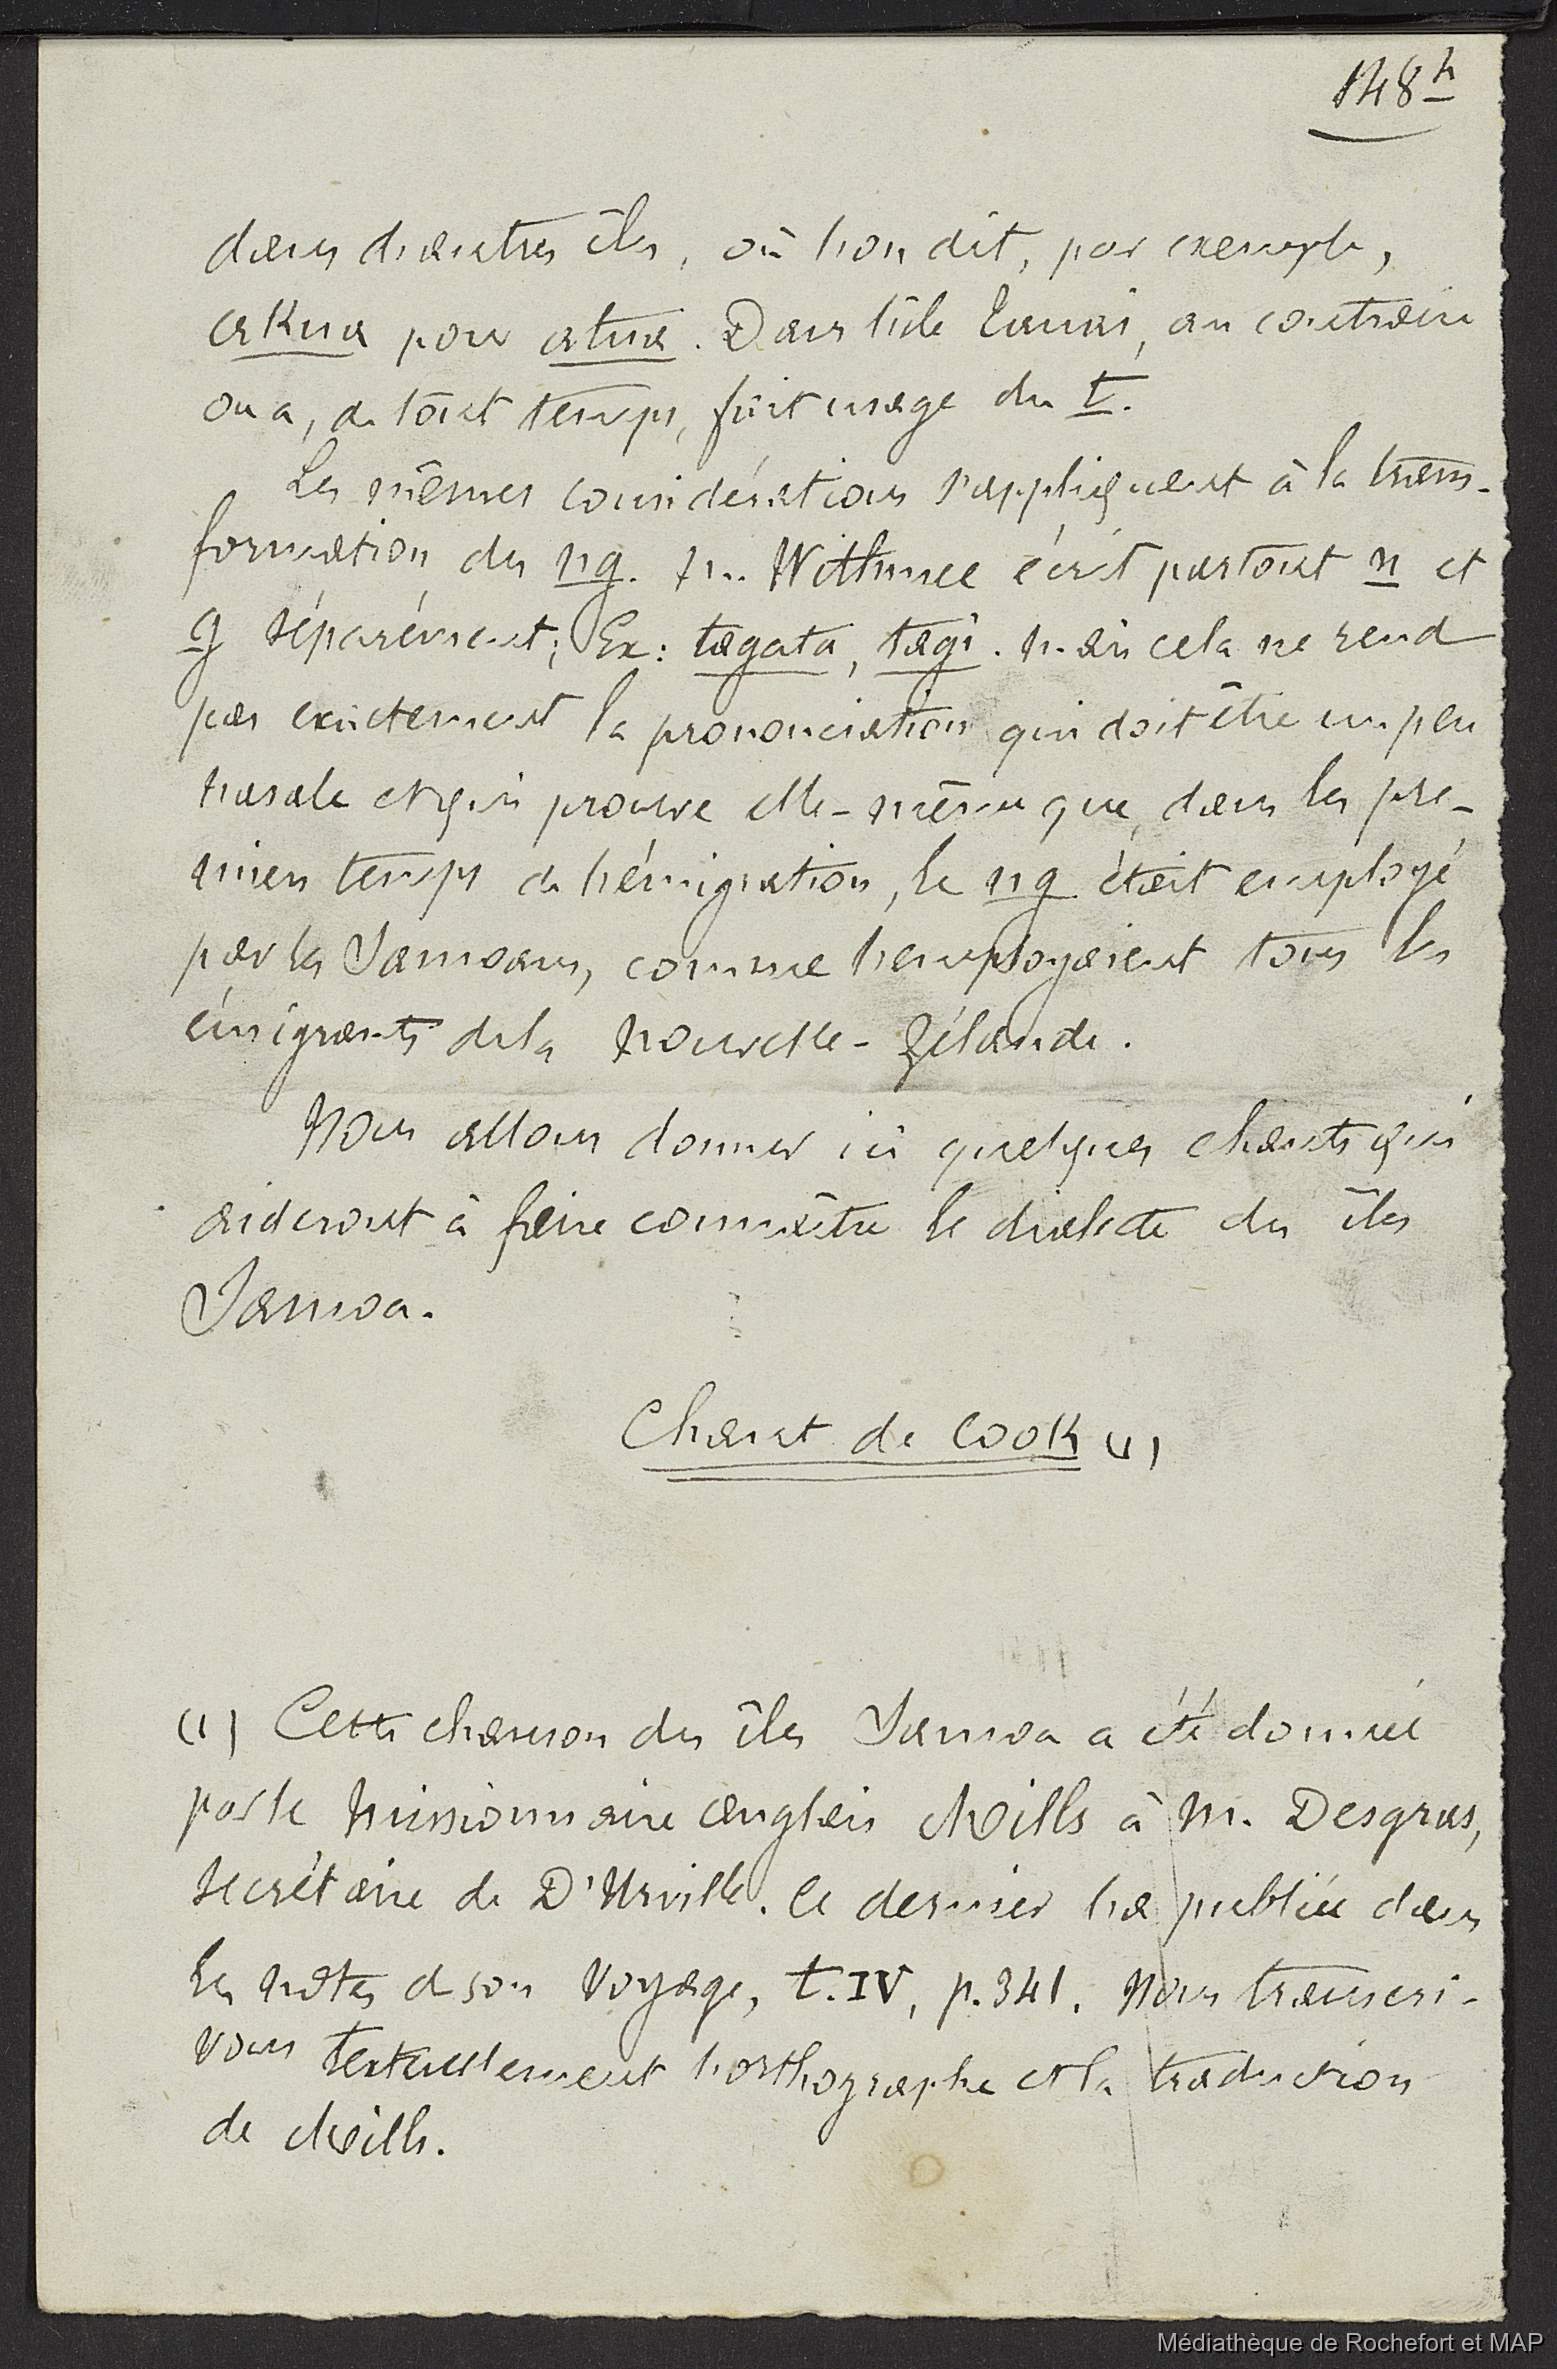 148h
dans d'autres îles, où l'on dit, par exemple,
akua pour atua. Dans l'île Kauai, au contraire
on a, de tout temps, fait usage du t.
Les mêmes considérations s'appliquent à la trans-
formation du ng. M. Withmee écrit partout n et
g séparément; Ex: tagata, tagi. Mais cela ne rend
pas exactement la prononciation qui doit être un peu
nasale et qui prouve elle-même que, dans les pre-
miers temps de l'émigration, le ng était employé
par les Samoans, comme l'employaient tous les
émigrants de la Nouvelle-Zélande.
Nous allons donner ici quelques chants qui
aideront à faire connaître le dialecte des îles
Samoa.
Chant de Cook (1)
(1) Cette chanson des îles Samoa a été donnée
par le missionnaire anglais Mills à M. Desgras,
secrétaire de D'Urville. Ce dernier l'a publiée dans
les notes de son Voyage, t. IV, p. 341. Nous transcri-
vons textuellement l'orthographe et la traduction
de Mills.
Médiathèque de Rochefort et MAP